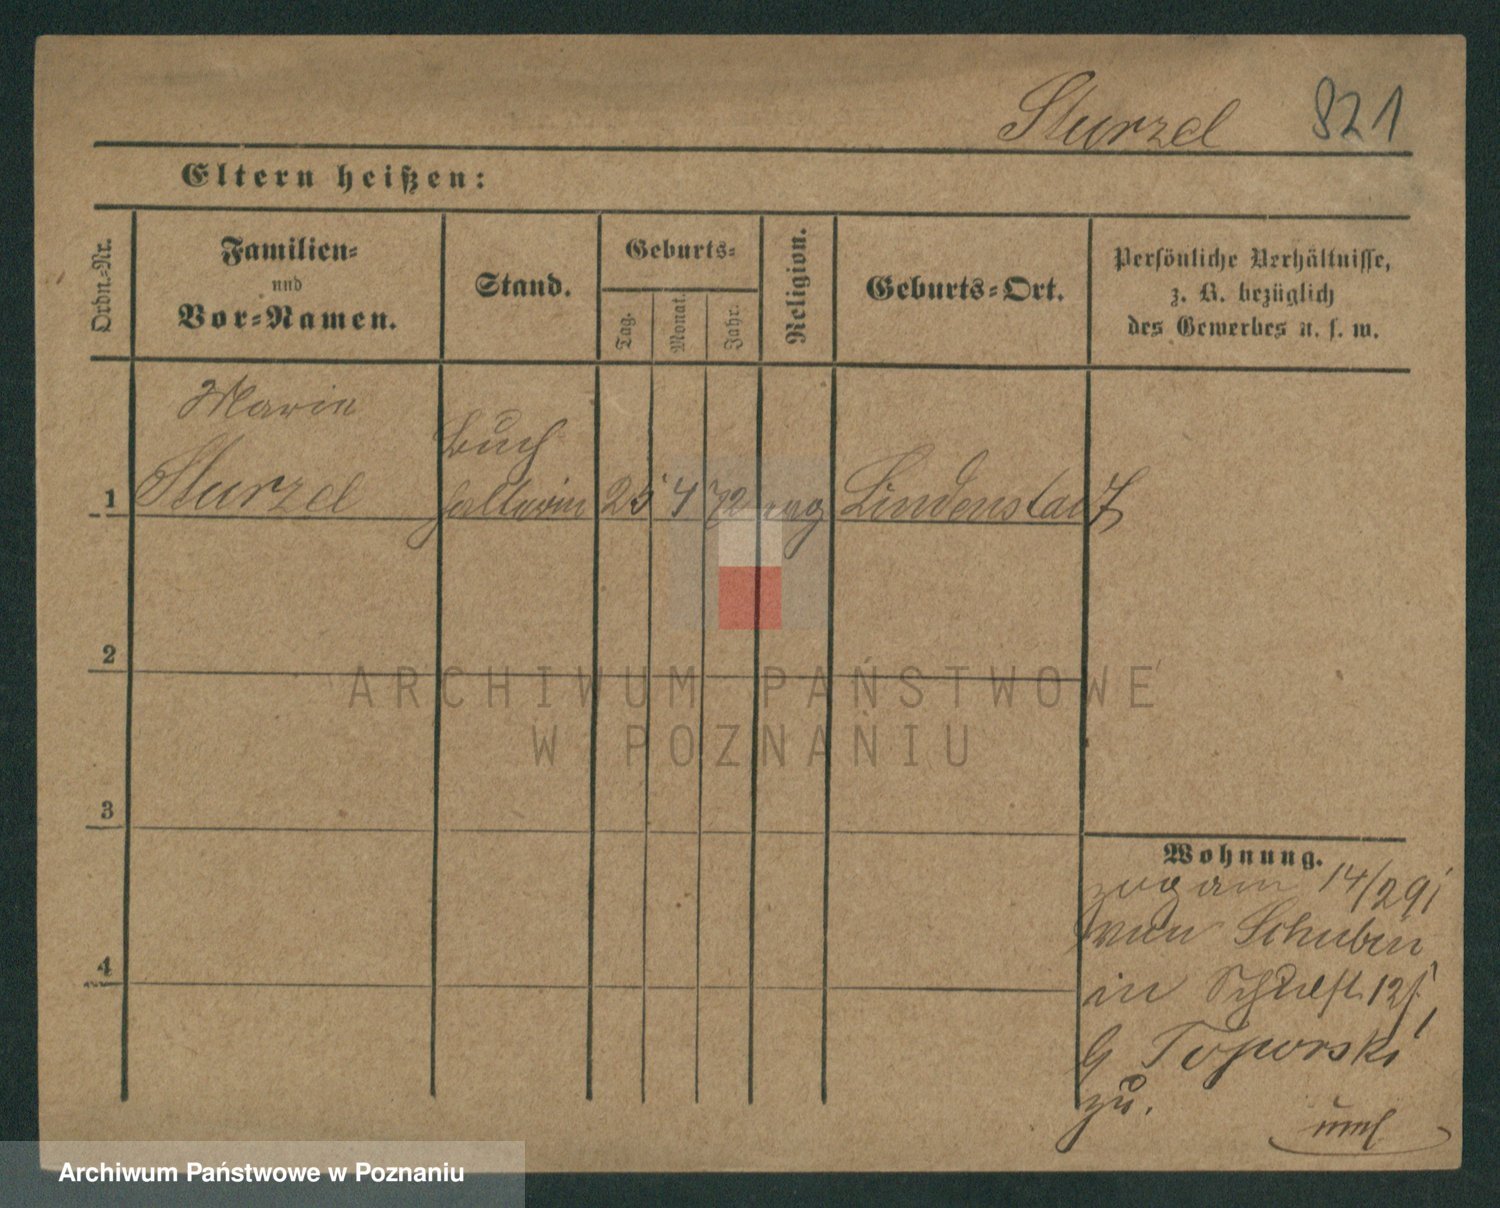 Sturzel 821
Eltern heißen:
Ordn.-Nr.
Familien-
und
Vor-Namen.
Stand.
Geburts-
Tag.
Monat.
Jahr.
Religion.
Geburts-Ort.
Persönliche Verhältnisse,
z. B. bezüglich
des Gewerbes u. s. w.
Marie
Buch
1 Sturzel halterin 25 4 72 evg Lindenstadt
2
3
4
Wohnung.
zog am 14/2 91
von Schubin
in 12
b Toporski
zu.
ARCHIWUM PAŃSTWOWE
W POZNANIU
Archiwum Państwowe w Poznaniu